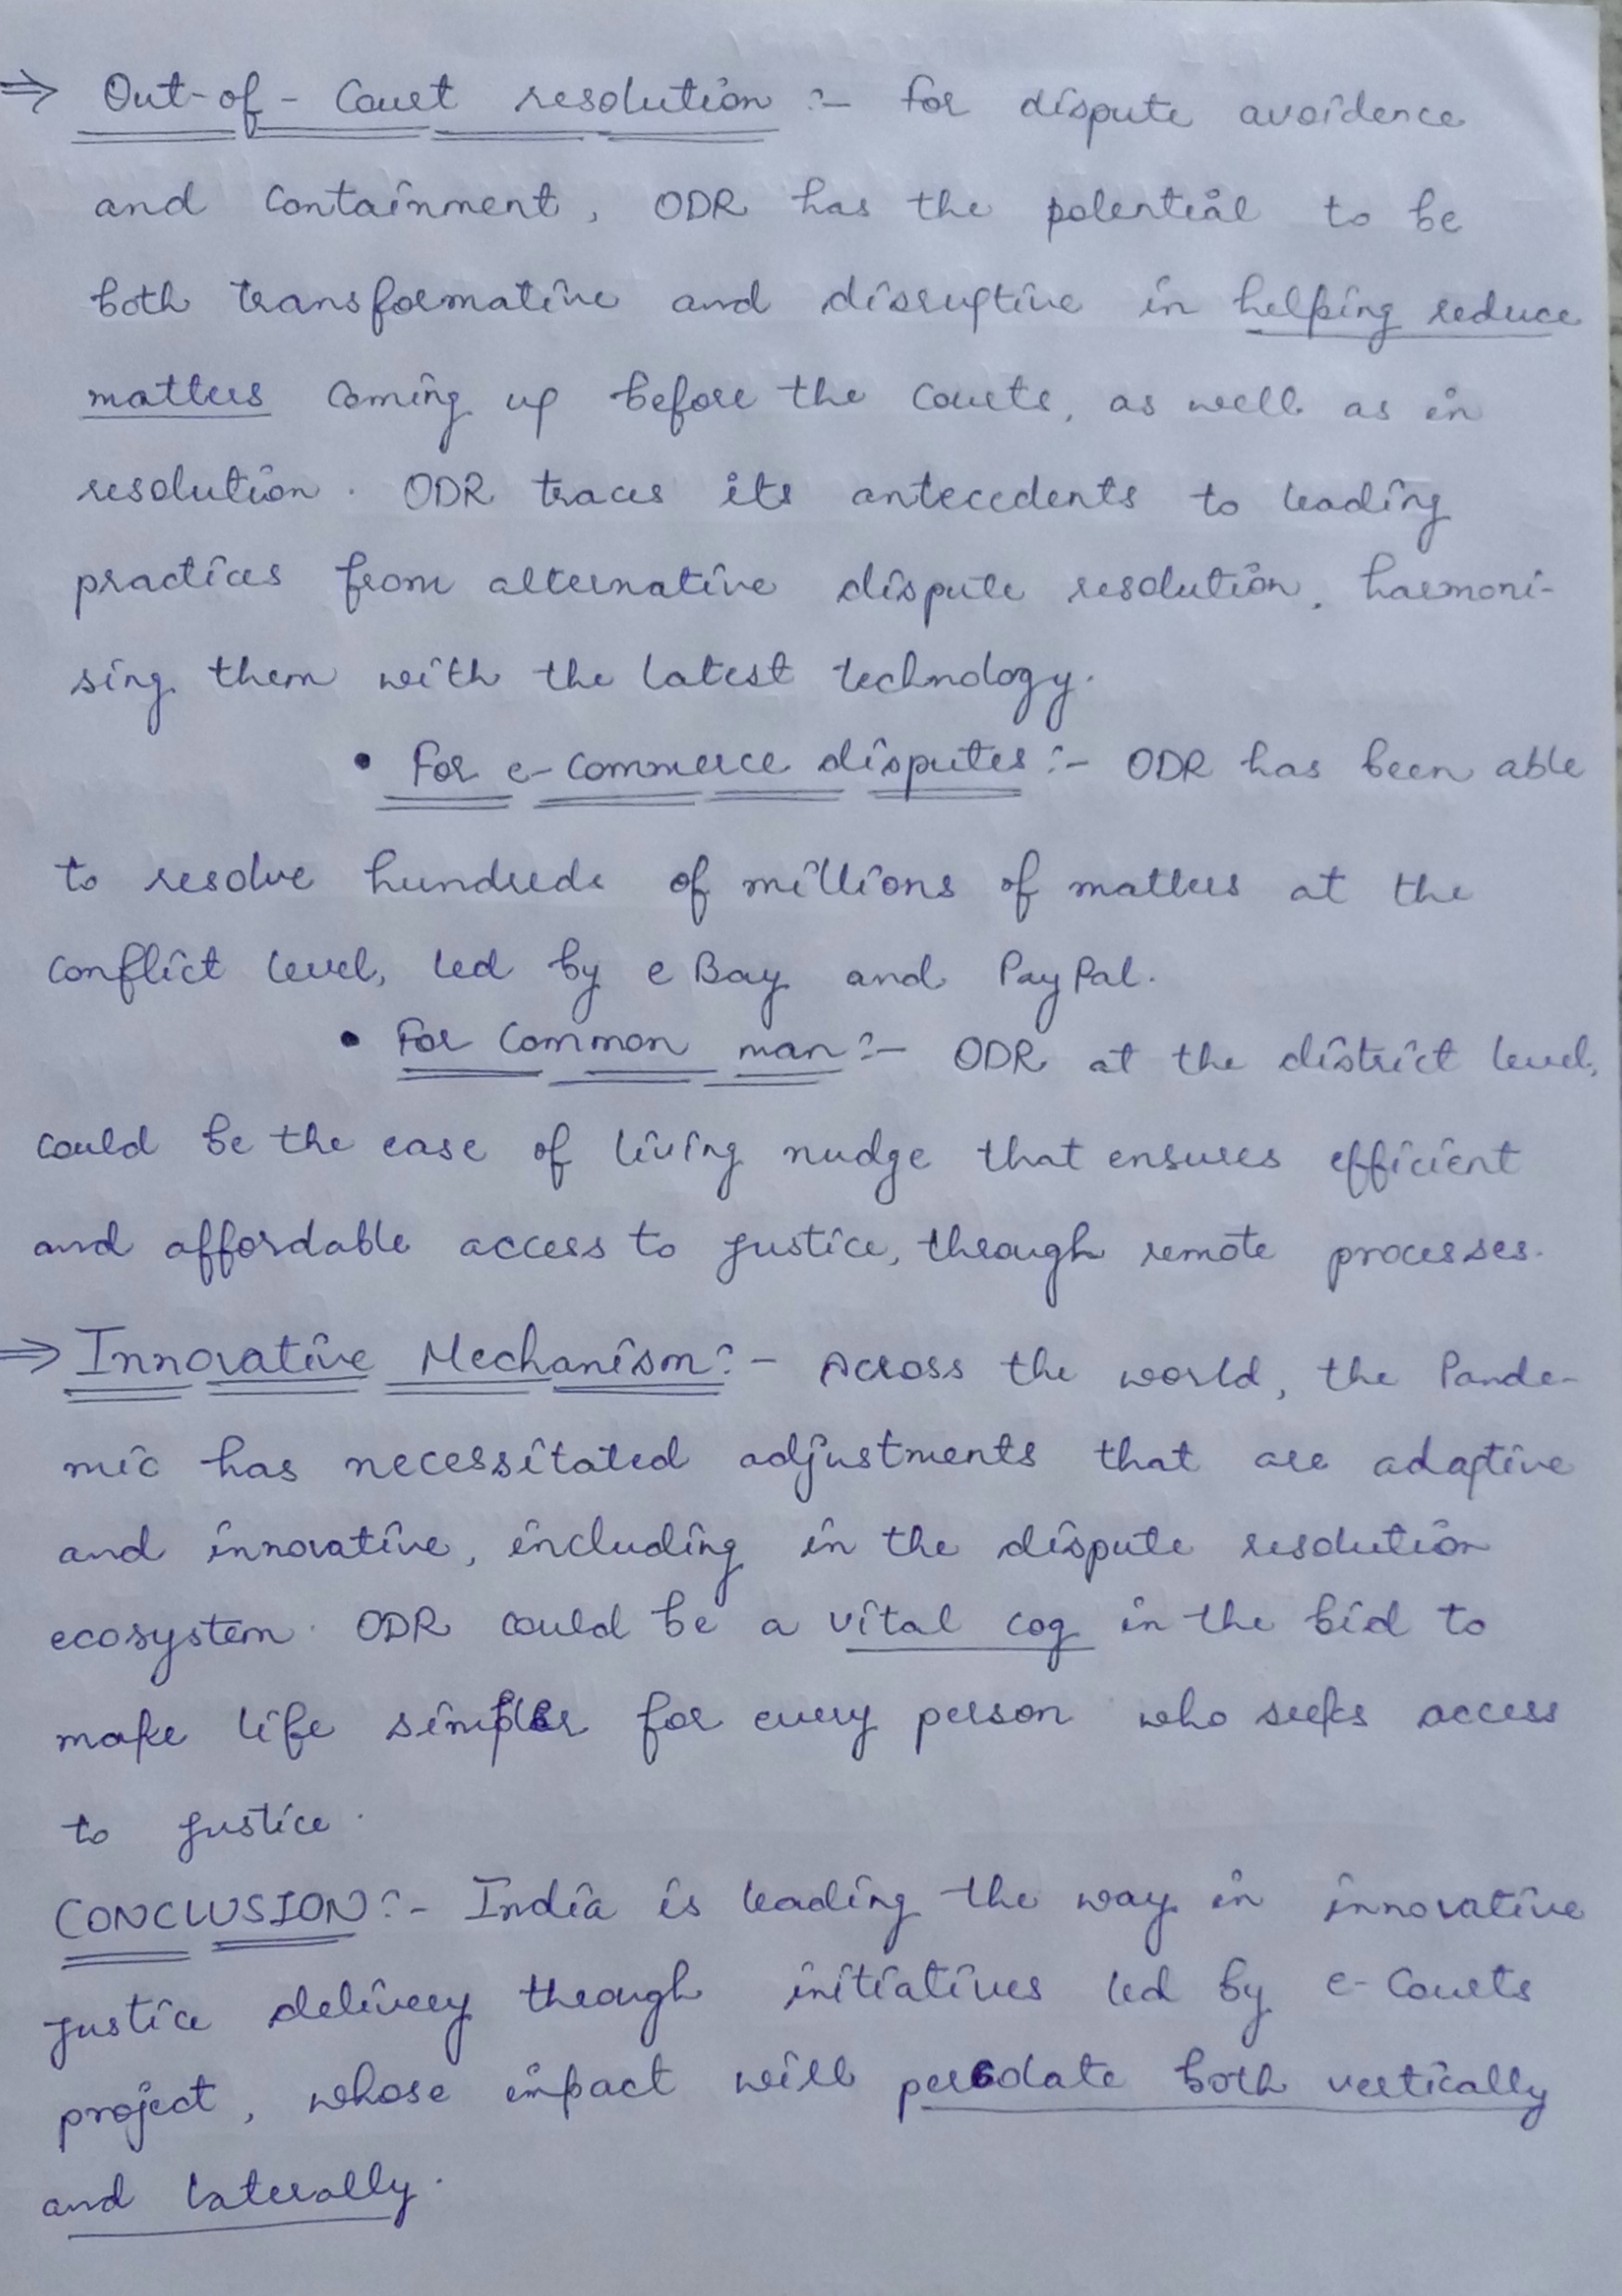 ⇒ Out-of-Court resolution :- For dispute avoidence
and containment, ODR has the potential to be
both transformative and disruptive in helping reduce
matters coming up before the courts, as well as in
resolution. ODR traces its antecedents to leading
practices from alternative dispute resolution, harmoni-
sing them with the latest technology.
• For e-commerce disputes :- ODR has been able
to resolve hundreds of millions of matters at the
conflict level, led by eBay and PayPal.
• For Common man :- ODR at the district level,
could be the ease of living nudge that ensures efficient
and affordable access to justice, through remote processes.
⇒ Innovative Mechanism :- Across the world, the Pande-
mic has necessitated adjustments that are adaptive
and innovative, including in the dispute resolution
ecosystem. ODR could be a vital cog in the bid to
make life simpler for every person who seeks access
to justice.
CONCLUSION :- India is leading the way in innovative
justice delivery through initiatives led by e-Courts
project, whose impact will percolate both vertically
and laterally.